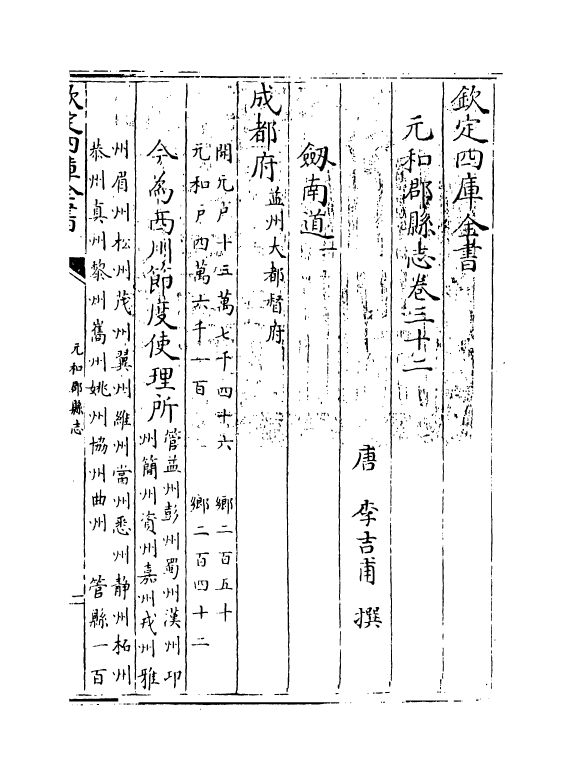 欽定四庫全書
元和郡縣志卷三十二
唐 李吉甫 撰
劒南道
成都府 益州大都督府
開元户十三萬七千四十六 鄉二百五十
元和户四萬六千一百 鄉二百四十二
今為西川節度使理所 管益州彭州蜀州漢州卭
州簡州資州嘉州戎州雅
州眉州松州茂州翼州維州當州悉州靜州柘州
恭州真州黎州巂州姚州協州曲州 管縣一百
欽定四庫全書
元和郡縣志